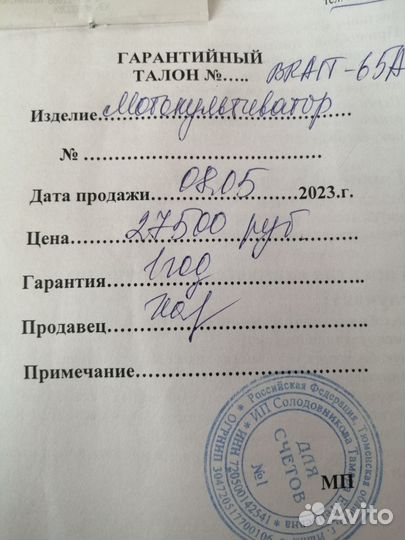 ГАРАНТИЙНЫЙ
ТАЛОН №..... BRAIT-65A
Изделие Мотокультиватор
№ ....................................
Дата продажи......08.05......2023.г.
Цена......27500 руб
Гарантия......1 год
Продавец......
Примечание....................................
Российская Федерация, Тюменская
ИП Солодовникова
ИНН 720500142541
ОГРНИП
ДЛЯ
СЧЕТОВ
№1
МП
Avito